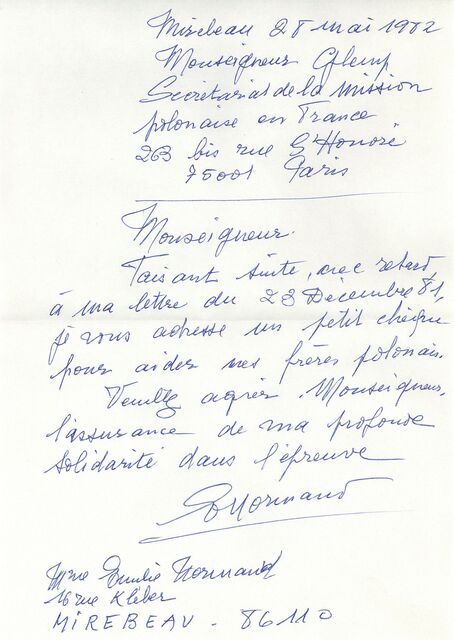 Mirebeau 28 mai 1982
Monseigneur Glemp
Secrétariat de la Mission
polonaise en France
263 bis rue St Honoré
75001 Paris
Monseigneur.
Faisant suite, avec retard,
à ma lettre du 23 Décembre 81,
je vous adresse un petit chèque
pour aider mes frères polonais.
Veuillez agréer, Monseigneur,
l'assurance de ma profonde
solidarité dans l'épreuve
Normand
Mme Emilie Normand
16 rue Kléber
MIREBEAU - 86110